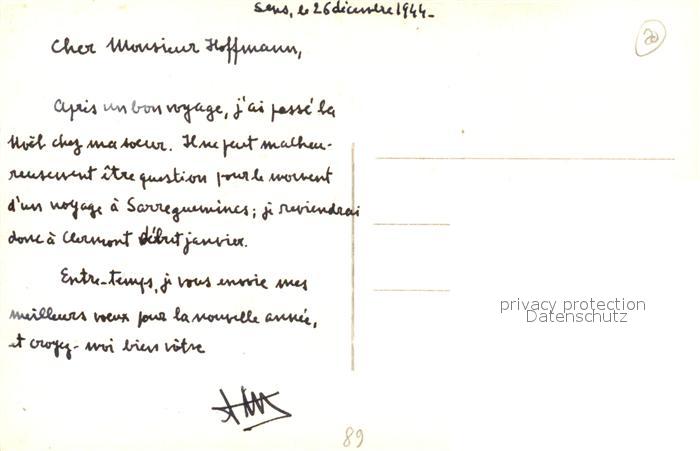 Sens, le 26 décembre 1944.
20
Cher Monsieur Hoffmann,
Après un bon voyage, j'ai passé la
Noël chez ma soeur. Il ne peut malheu-
reusement être question pour le moment
d'un voyage à Sarreguemines; je reviendrai
donc à Clermont début janvier.
Entre-temps, je vous envoie mes
meilleurs voeux pour la nouvelle année,
et croyez-moi bien vôtre
privacy protection
Datenschutz
89